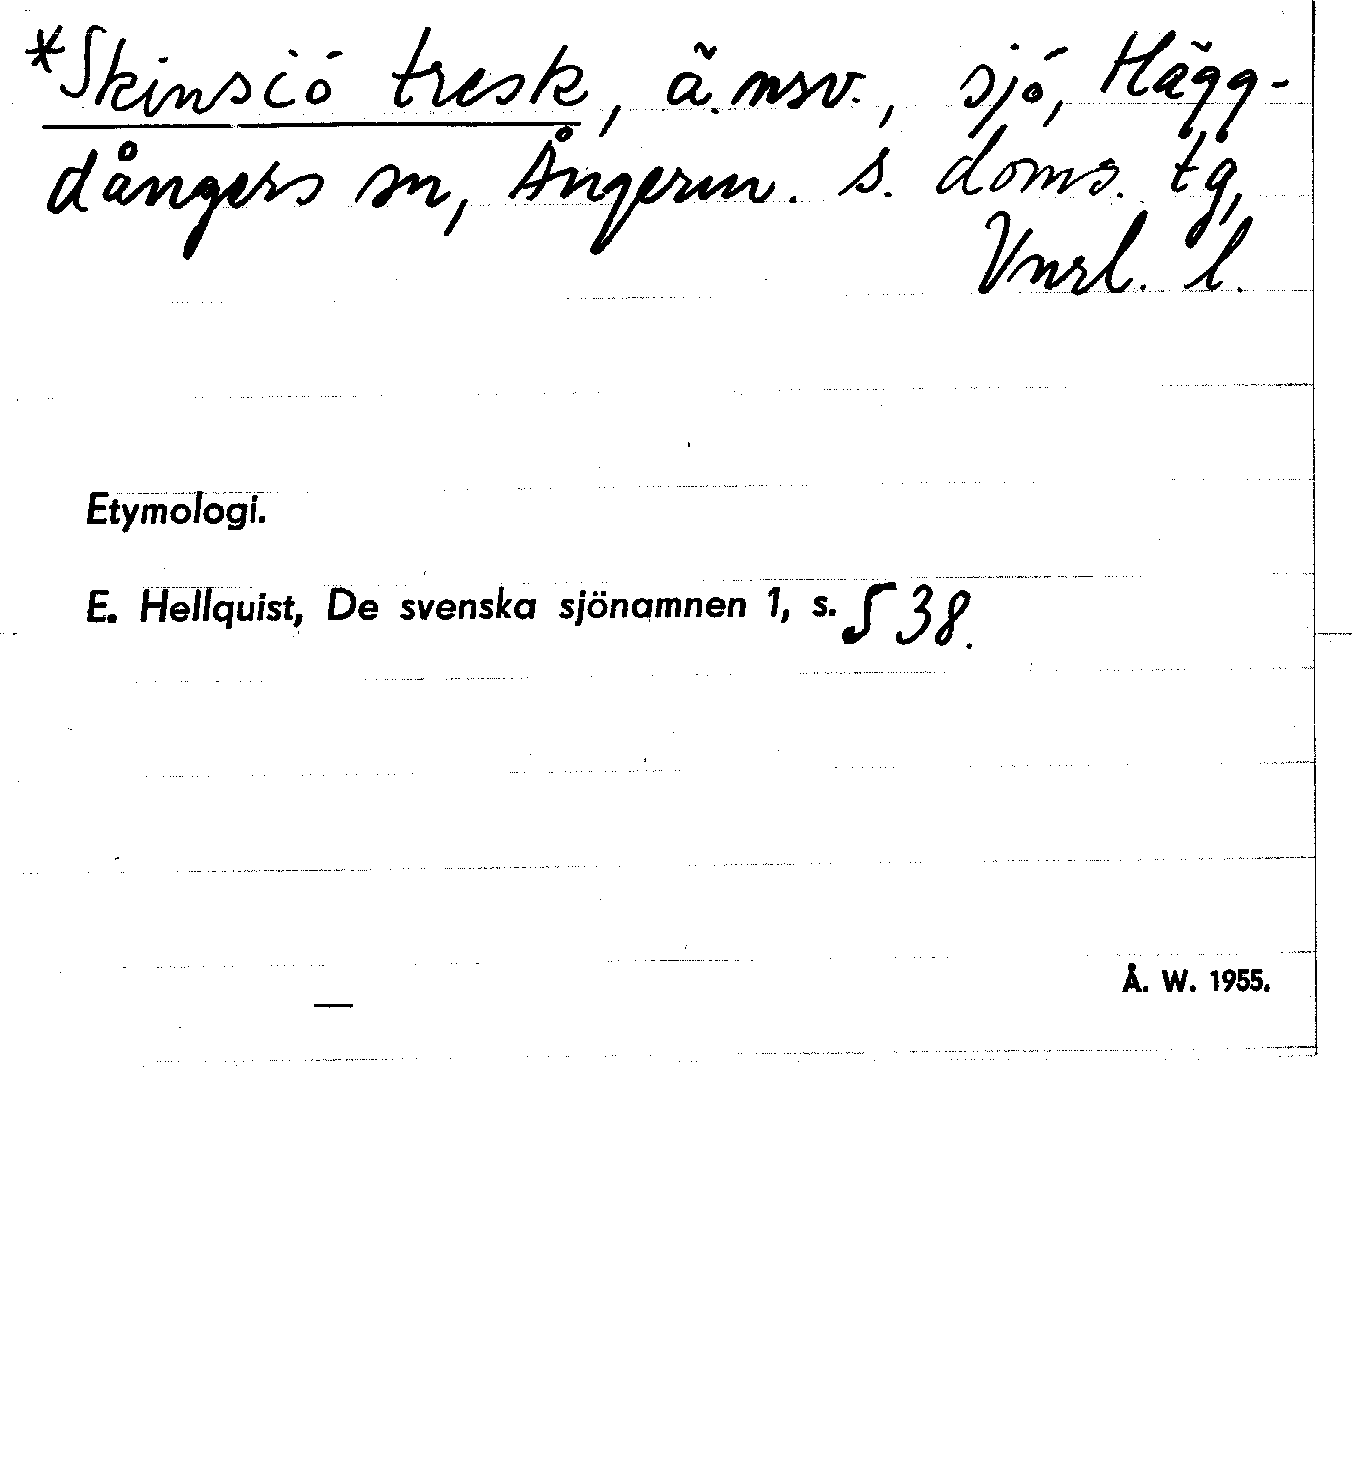 *Skinsiö tresk, ä.nsv., sjö, Hägg-
dångers sn, Ångerm. s. doms. tg,
Vnrl. l.
Etymologi.
E. Hellquist, De svenska sjönamnen 1, s. 538.
Å. W. 1955.